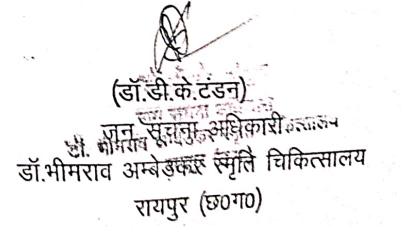 (डॉ.डी.के.टंडन)
जन सूचना अधिकारी
डॉ.भीमराव अम्बेडकर स्मृति चिकित्सालय
रायपुर (छ0ग0)